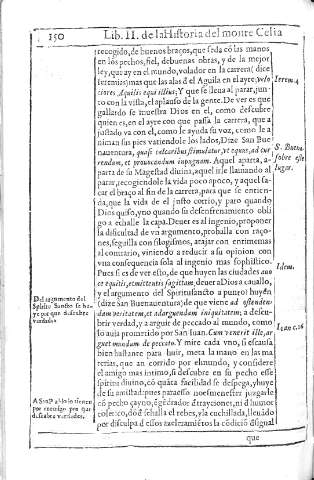 150 Lib. II. de la Historia del monte Celia
recogido, de buenos braços, que seda cō las manos
en los pechos, fiel, de buenas obras, y de la mejor
ley, que ay en el mundo, volador en la carrera (dize
Ieremias) mas que las alas del Aguila en el ayre, velo-
ciores Aquilis equi illius; Y que se llena al parar, jun-
to con la vista, el aplauso de la gente. De ver es que
gallardo se muestra Dios en el, como descubre,
quien es, en el ayre con que passa la carrera, que a
justado va con el, como le ayuda su voz, como le a
niman sus pies vatiendole los lados, Dize San Bue
nauentura, quasi calcaribus stimulatur, et equus, ad cur
rendum, et prouocandum in pugnam. Aquel aparta, a-
parta de su Magestad diuina, aquel irse llamando al
parar, recogiendole la vida poco a poco, y aquel sa-
car el braço al fin de la carrera, para que se entien-
da, que la vida de el justo corrio, y paro quando
Dios quiso, y no quando su desenfrenamiento obli
go a echalle la capa. Deuer es al ingenio, proponer
la dificultad de vn argumento, proballa con raço-
nes, seguilla con silogismos, atajar con entimemas
al contrario, viniendo a reducir a su opinion con
vna consequencia sola al ingenio mas sophistico.
Pues si es de ver esto, de que huyen las ciudades
equitis, et mittentis sagittam, de uer a Dios a cauallo,
y el argumento del Spiritusancto a punto (huyēn
(dize San Buenauentura) de que viene ad ostenden-
dam veritatem, et ad arguendam iniquitatem; a descu-
brir verdad, y a arguir de peccado al mundo, como
lo auia prometido por San Iuan. Cum venerit ille, ar-
guet mundum de peccato. Y mire cada vno, si es causa
bien bastante para huir, meta la mano en las ma
terias, que an corrido por el mundo, y considere
el amigo mas intimo, si descubre en su pecho esse
spiritu diuino, cō quāta facilidad se despega, y huye
de su amistad: pues
cō pecho çayno, ēgēdrador d trayciones, ni d humor
colerico, dōd se halla el rebes, y la cuchillada, lleuādo
por disculpa d essos la cōdiciō d sigual
que
Ierem. 4
S. Buena.
sobre este
lugar.
Idem.
Ioan c. 16
Del argumento del
Spiritu Sancto se hu
ye por que descubre
verdades.
por enemigo por que
descubre verdades.